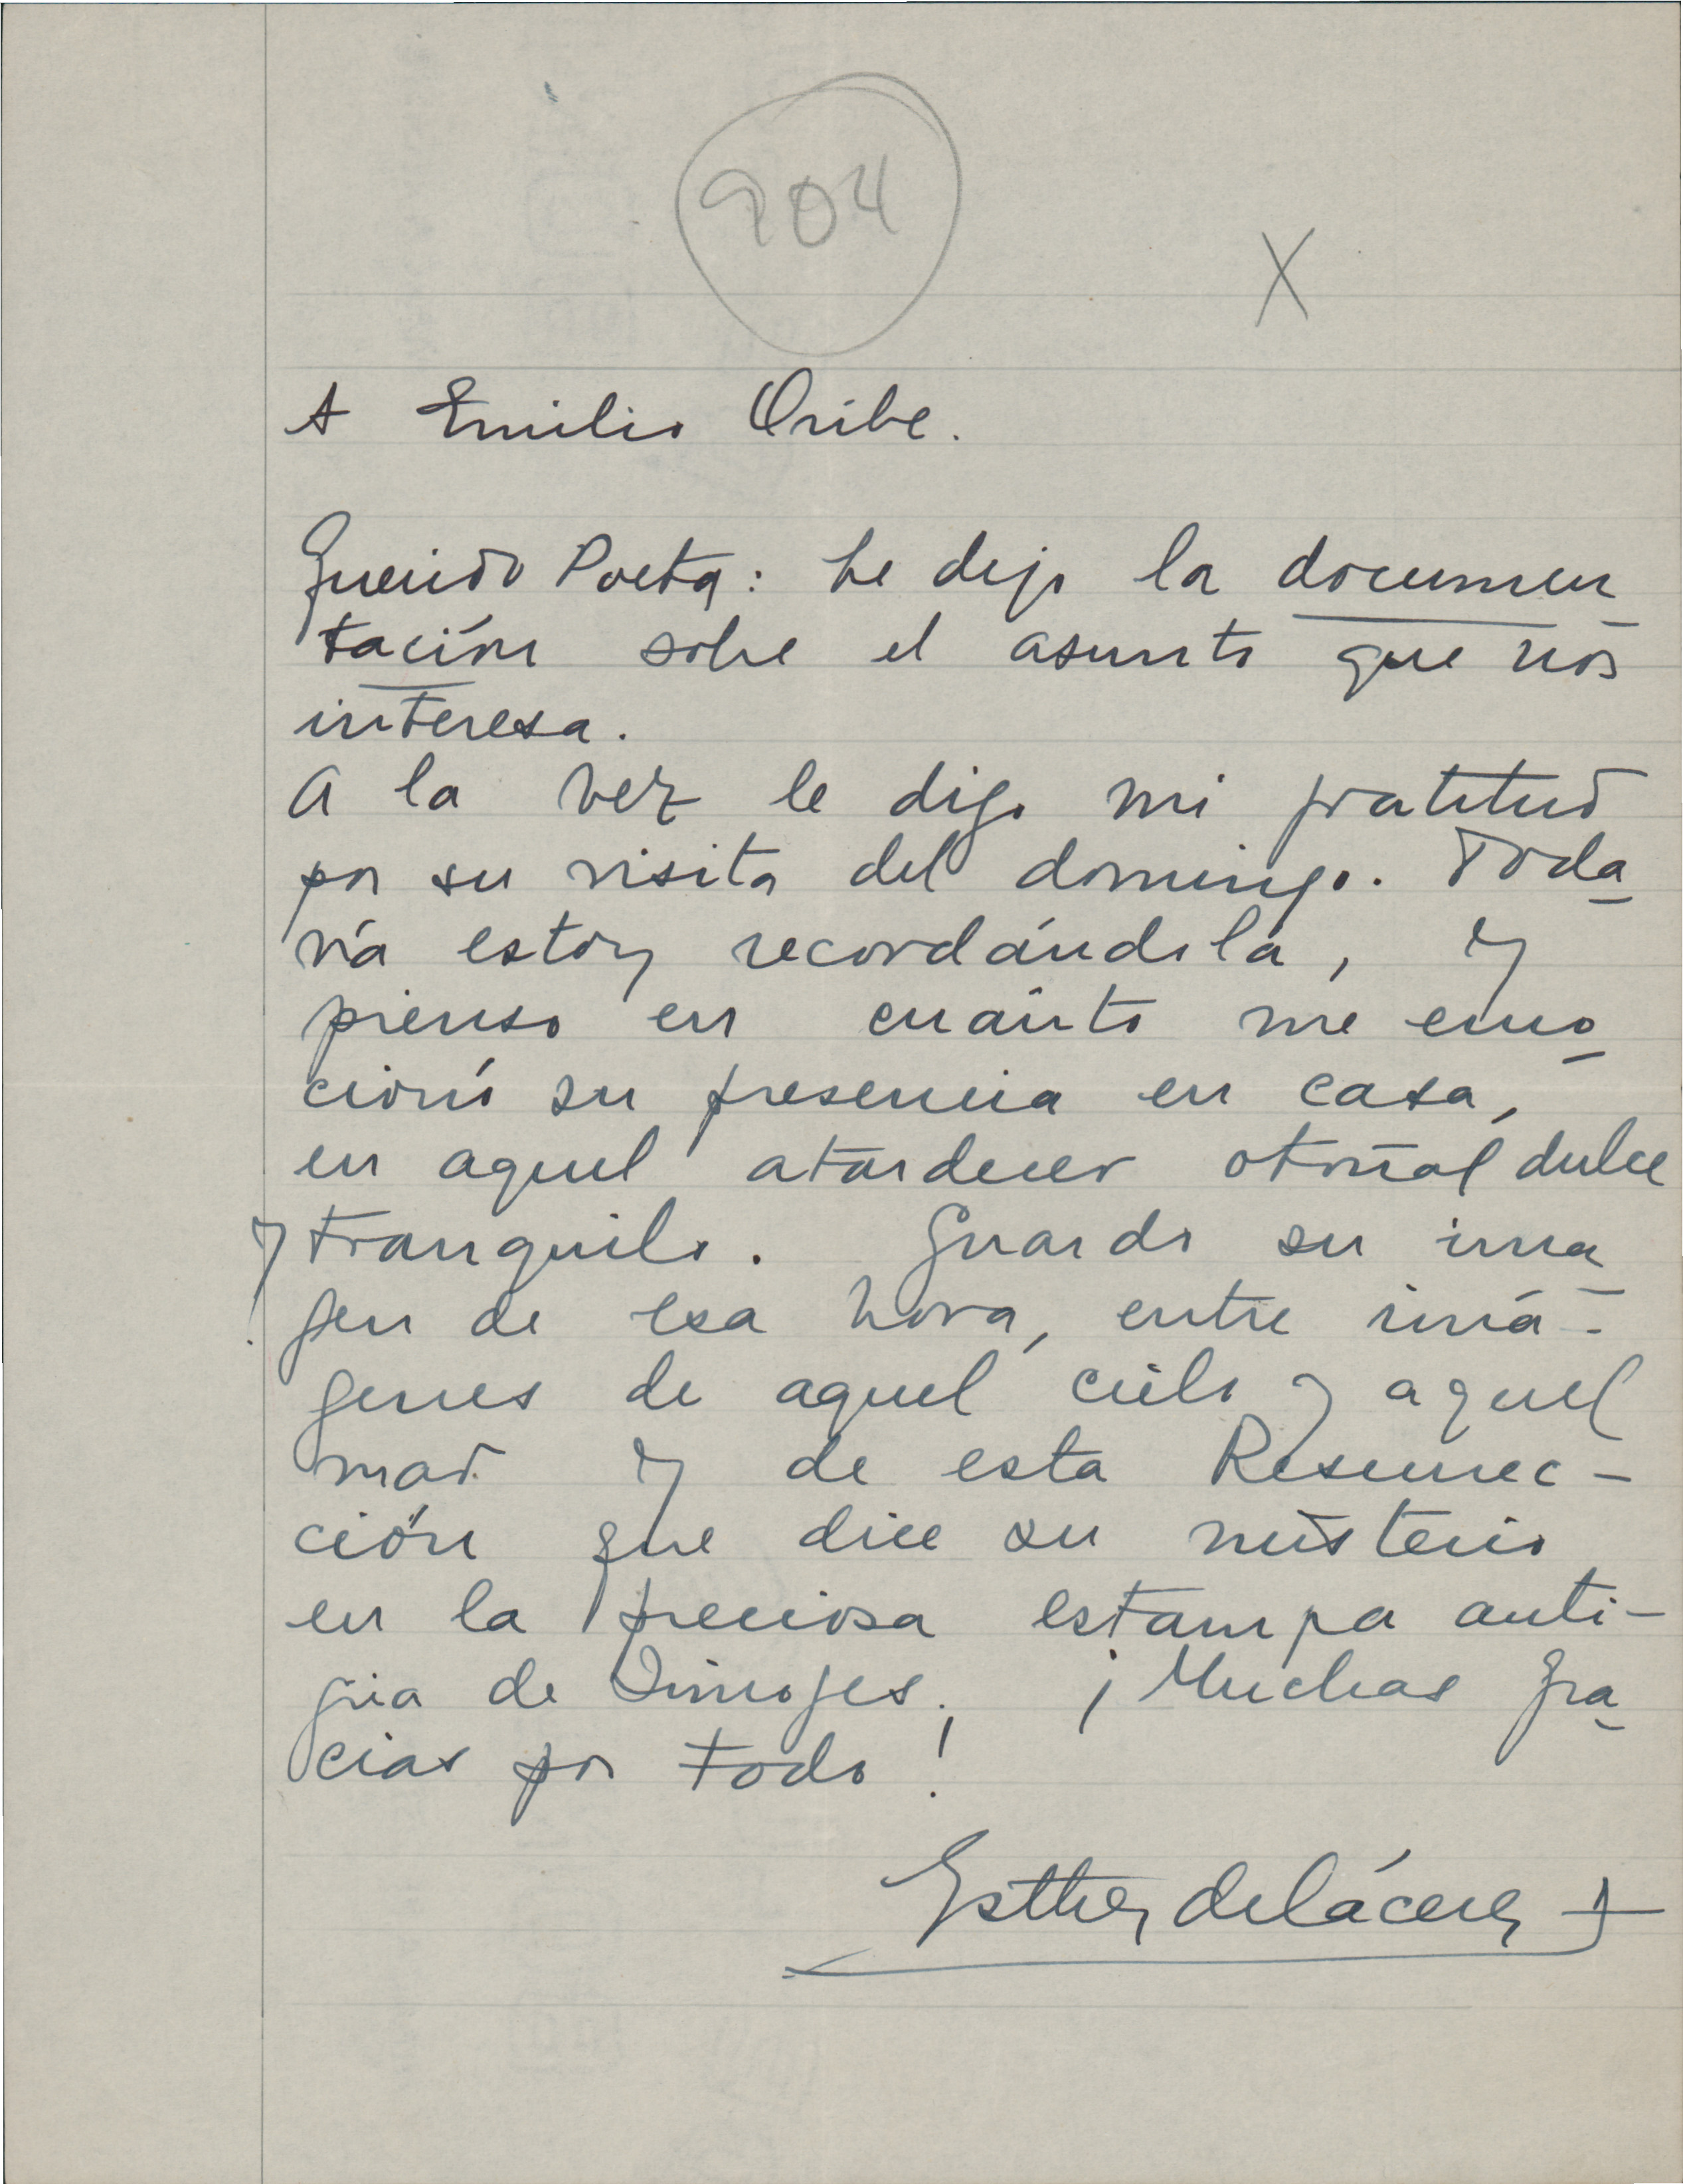 904
X
A Emilio Oribe.
Querido Poeta: Le dejo la documen
tación sobre el asunto que nos
interesa.
A la vez le digo mi gratitud
por su visita del domingo. Toda
vía estoy recordándola, y
pienso en cuánto me emo
cionó su presencia en casa,
en aquel atardecer otoñal dulce
y tranquilo. Guardo su ima
gen de esa hora, entre imá-
genes de aquel cielo y aquel
mar y de esta Resurrec-
ción que dice su misterio
en la preciosa estampa anti-
gua de Limoges. ¡Muchas gra
cias por todo!
Esther de Cáceres